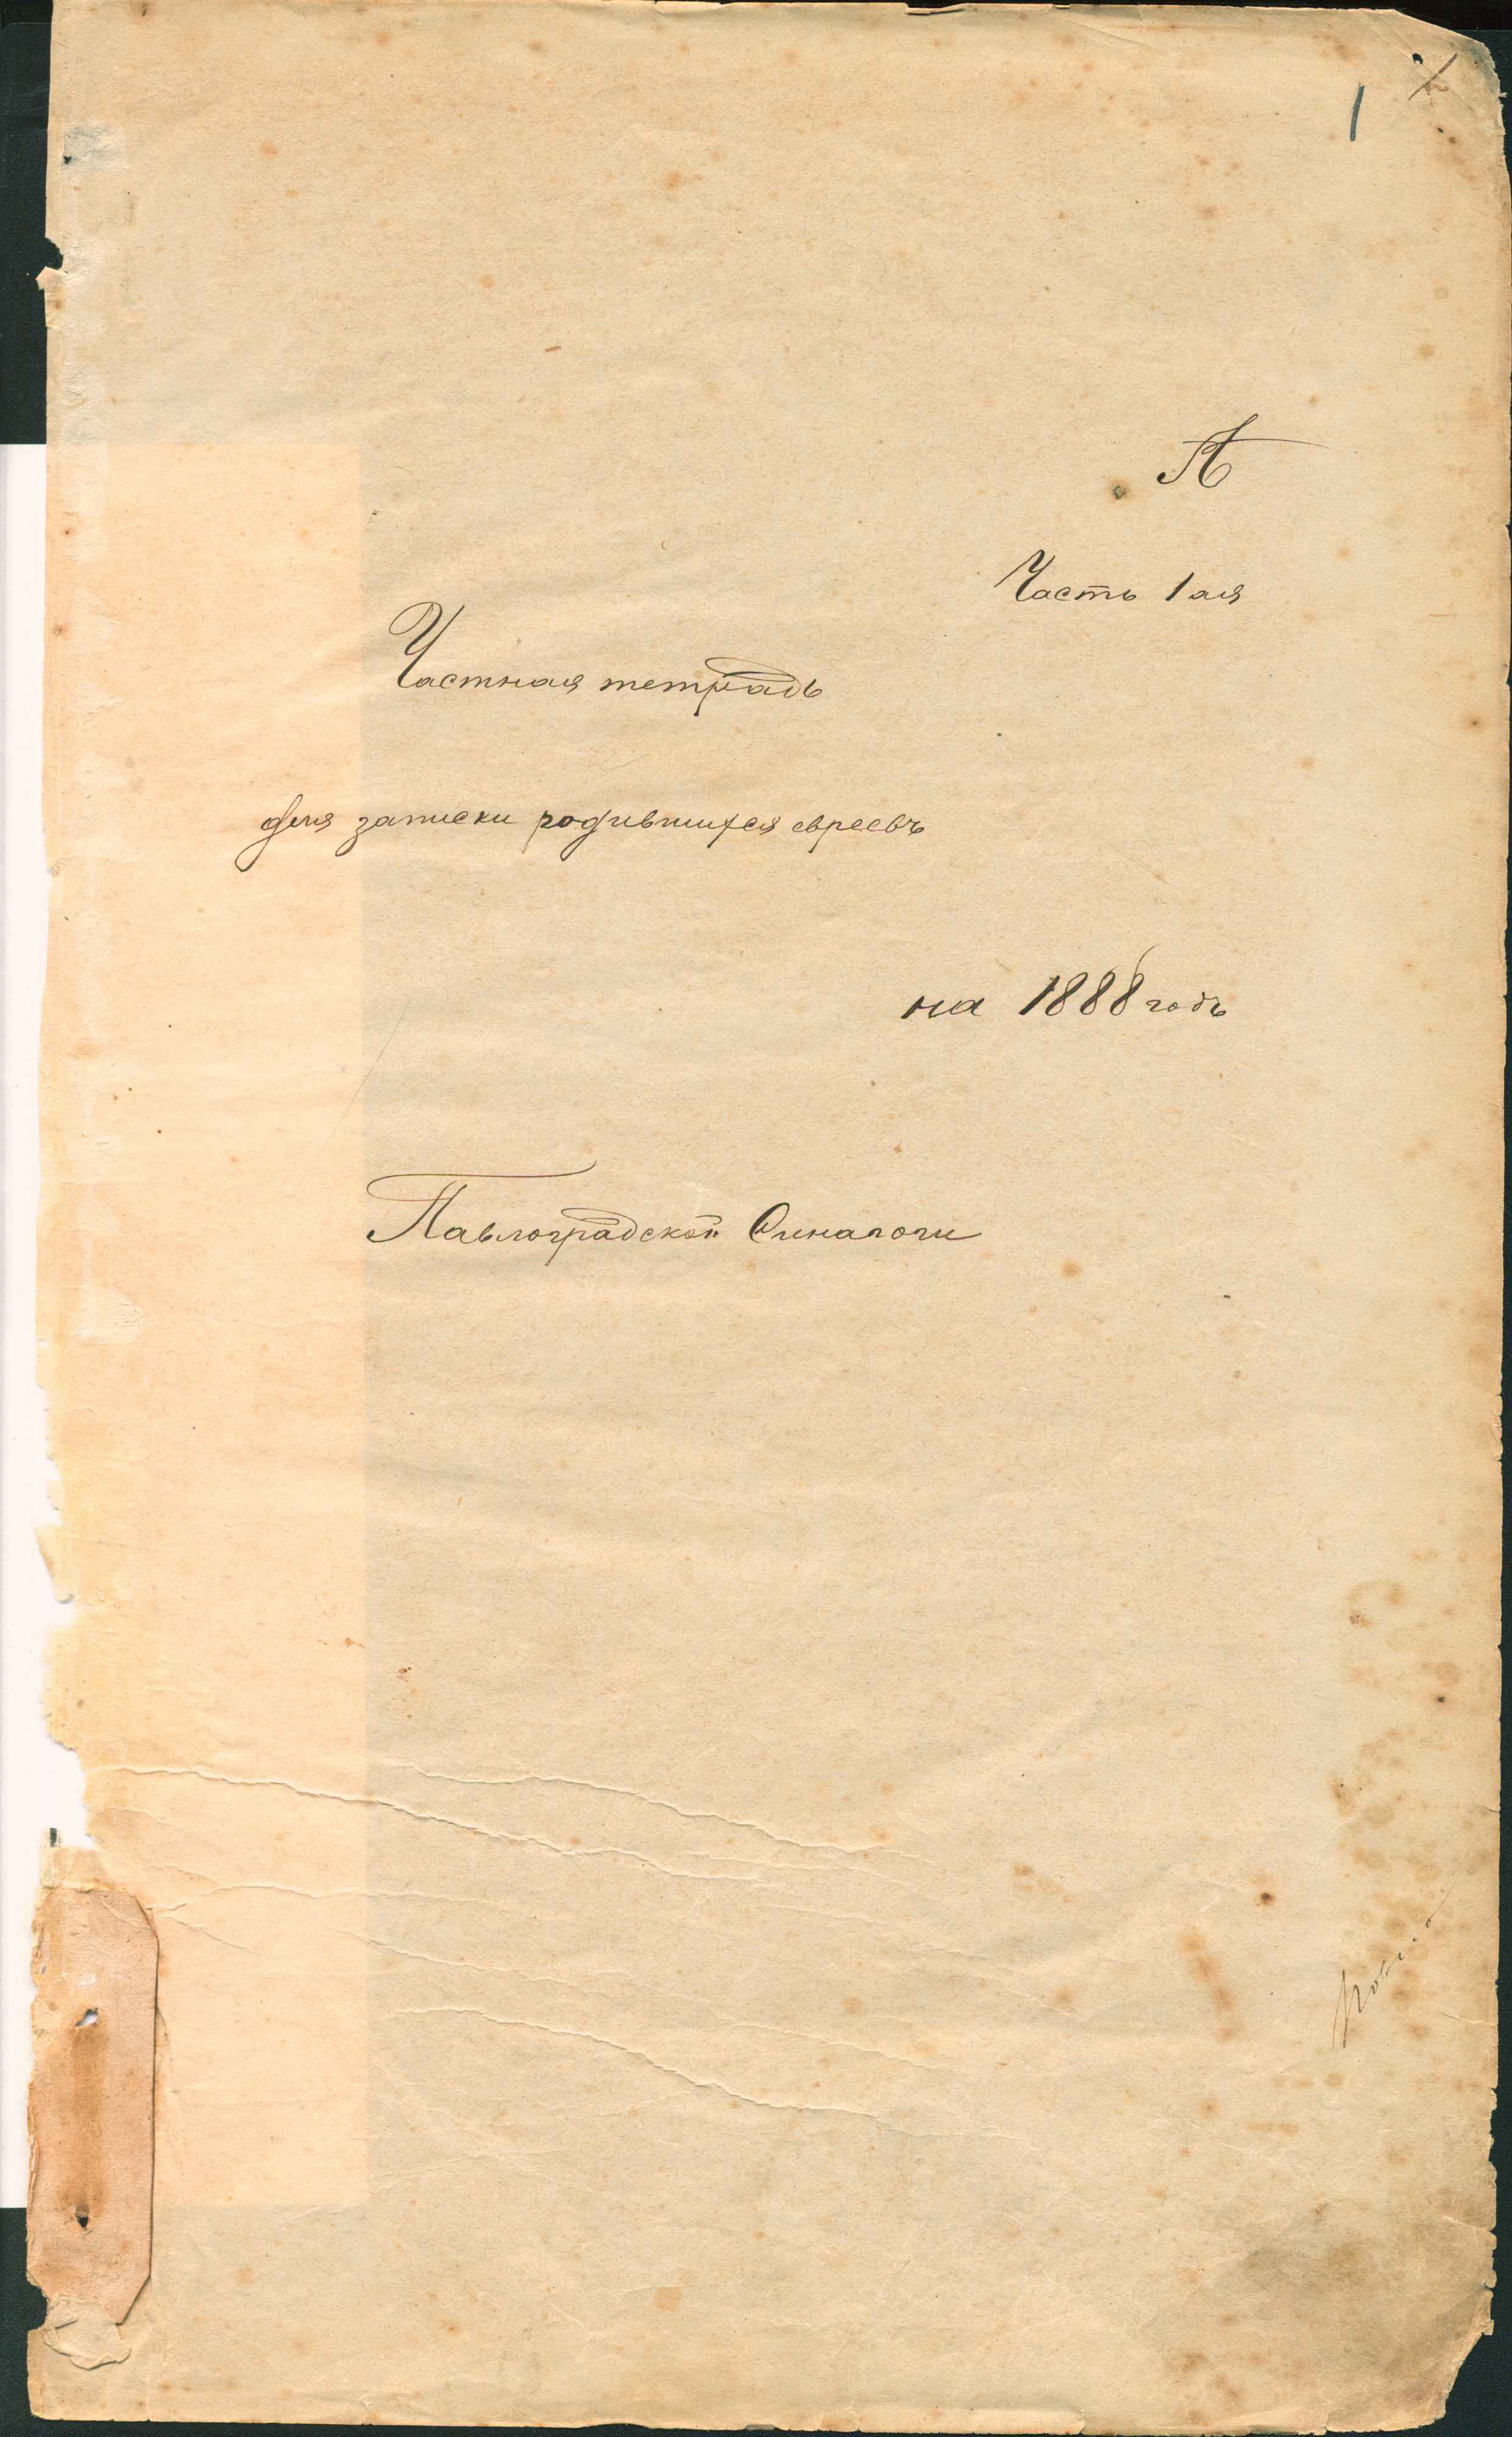 1
А
Часть 1ая
Частная тетрадь
для записки родившихся евреевъ
на 1888 годъ
Павлоградской Синагоги